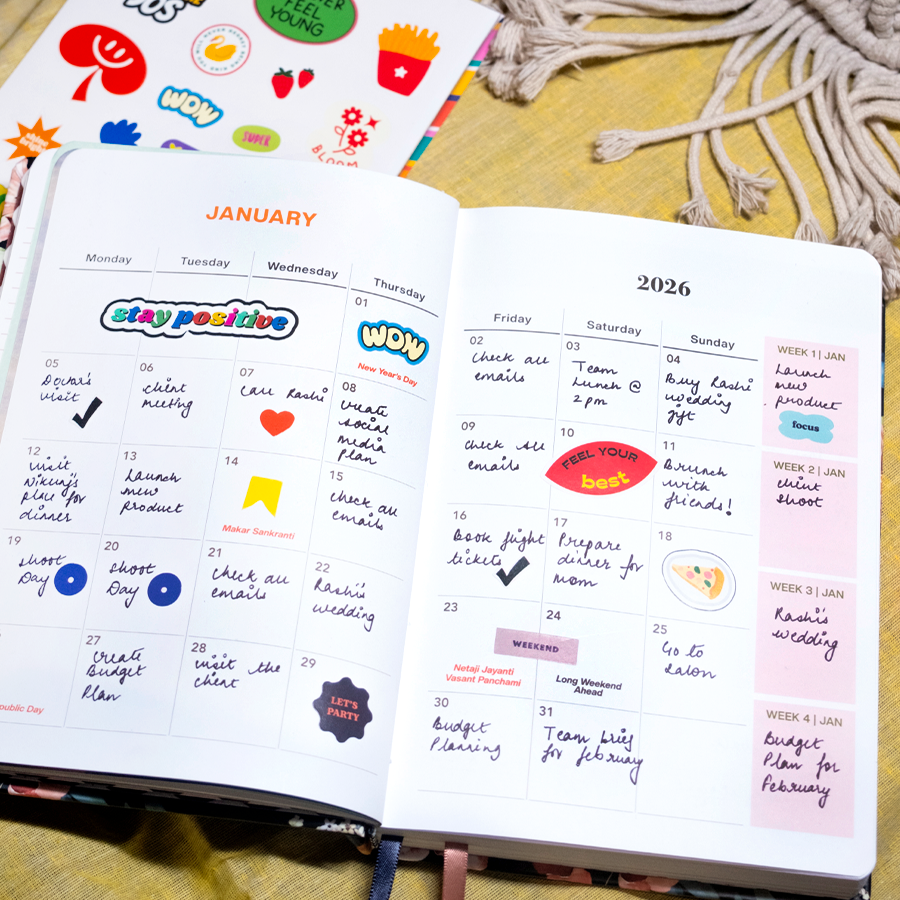 FEEL
YOUNG
WOW
SUPER
BLOOM
JANUARY
2026
Monday Tuesday Wednesday Thursday
Friday Saturday Sunday
stay positive
01
WOW
New Year's Day
02
Check all
emails
03
Team
Lunch @
2 pm
04
Buy Rashi
wedding
gift
WEEK 1 | JAN
Launch
new
product
focus
05
visit
06
client
meeting
07
Call Rashi
08
Create
social
media
plan
09
Check all
emails
10
FEEL YOUR
best
11
Brunch
with
friends!
WEEK 2 | JAN
client
shoot
12
visit
Nikunj's
place for
dinner
13
Launch
new
product
14
Makar Sankranti
15
Check all
emails
16
Book flight
tickets
17
Prepare
dinner for
mom
18
WEEK 3 | JAN
Rashi's
wedding
19
shoot
Day
20
shoot
Day
21
Check all
emails
22
Rashi's
wedding
23
WEEKEND
Netaji Jayanti
Vasant Panchami
24
Long Weekend
Ahead
25
Go to
salon
WEEK 4 | JAN
Budget
Plan for
February
public Day
27
Create
Budget
Plan
28
visit the
client
29
LET'S
PARTY
30
Budget
Planning
31
Team brief
for february